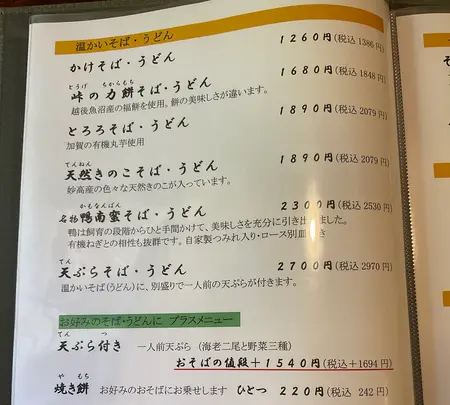 温かいそば・うどん
かけそば・うどん 1260円(税込1386円)
とうげ ちからもち
峠の力餅そば・うどん 1680円(税込1848円)
越後魚沼産の福餅を使用。餅の美味しさが違います。
とろろそば・うどん 1890円(税込2079円)
加賀の有機丸芋使用
てんねん
天然きのこそば・うどん 1890円(税込2079円)
妙高産の色々な天然きのこが入っています。
かもなんばん
名物鴨南蛮そば・うどん 2300円(税込2530円)
鴨は飼育の段階からひと手間かけて、美味しさを充分に引き出しました。
有機ねぎとの相性も抜群です。自家製つみれ入り・ロース別皿
てん
天ぷらそば・うどん 2700円(税込2970円)
温かいそば(うどん)に、別盛りで一人前の天ぷらが付きます。
お好みのそば・うどんに プラスメニュー
てん つ
天ぷら付き 一人前天ぷら (海老二尾と野菜三種)
おそばの値段+1540円(税込+1694円)
や もち
焼き餅 お好みのおそばにお乗せします ひとつ 220円(税込 242円)